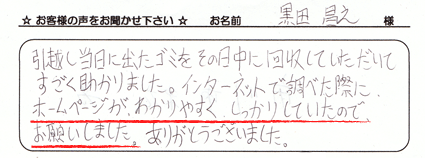 ☆ お客様の声をお聞かせ下さい ☆ お名前 黒田 昌之 様
引越し当日に出たゴミをその日中に回収していただいて
すごく助かりました。インターネットで調べた際に、
ホームページが、わかりやすく、しっかりしていたので、
お願いしました。ありがとうございました。